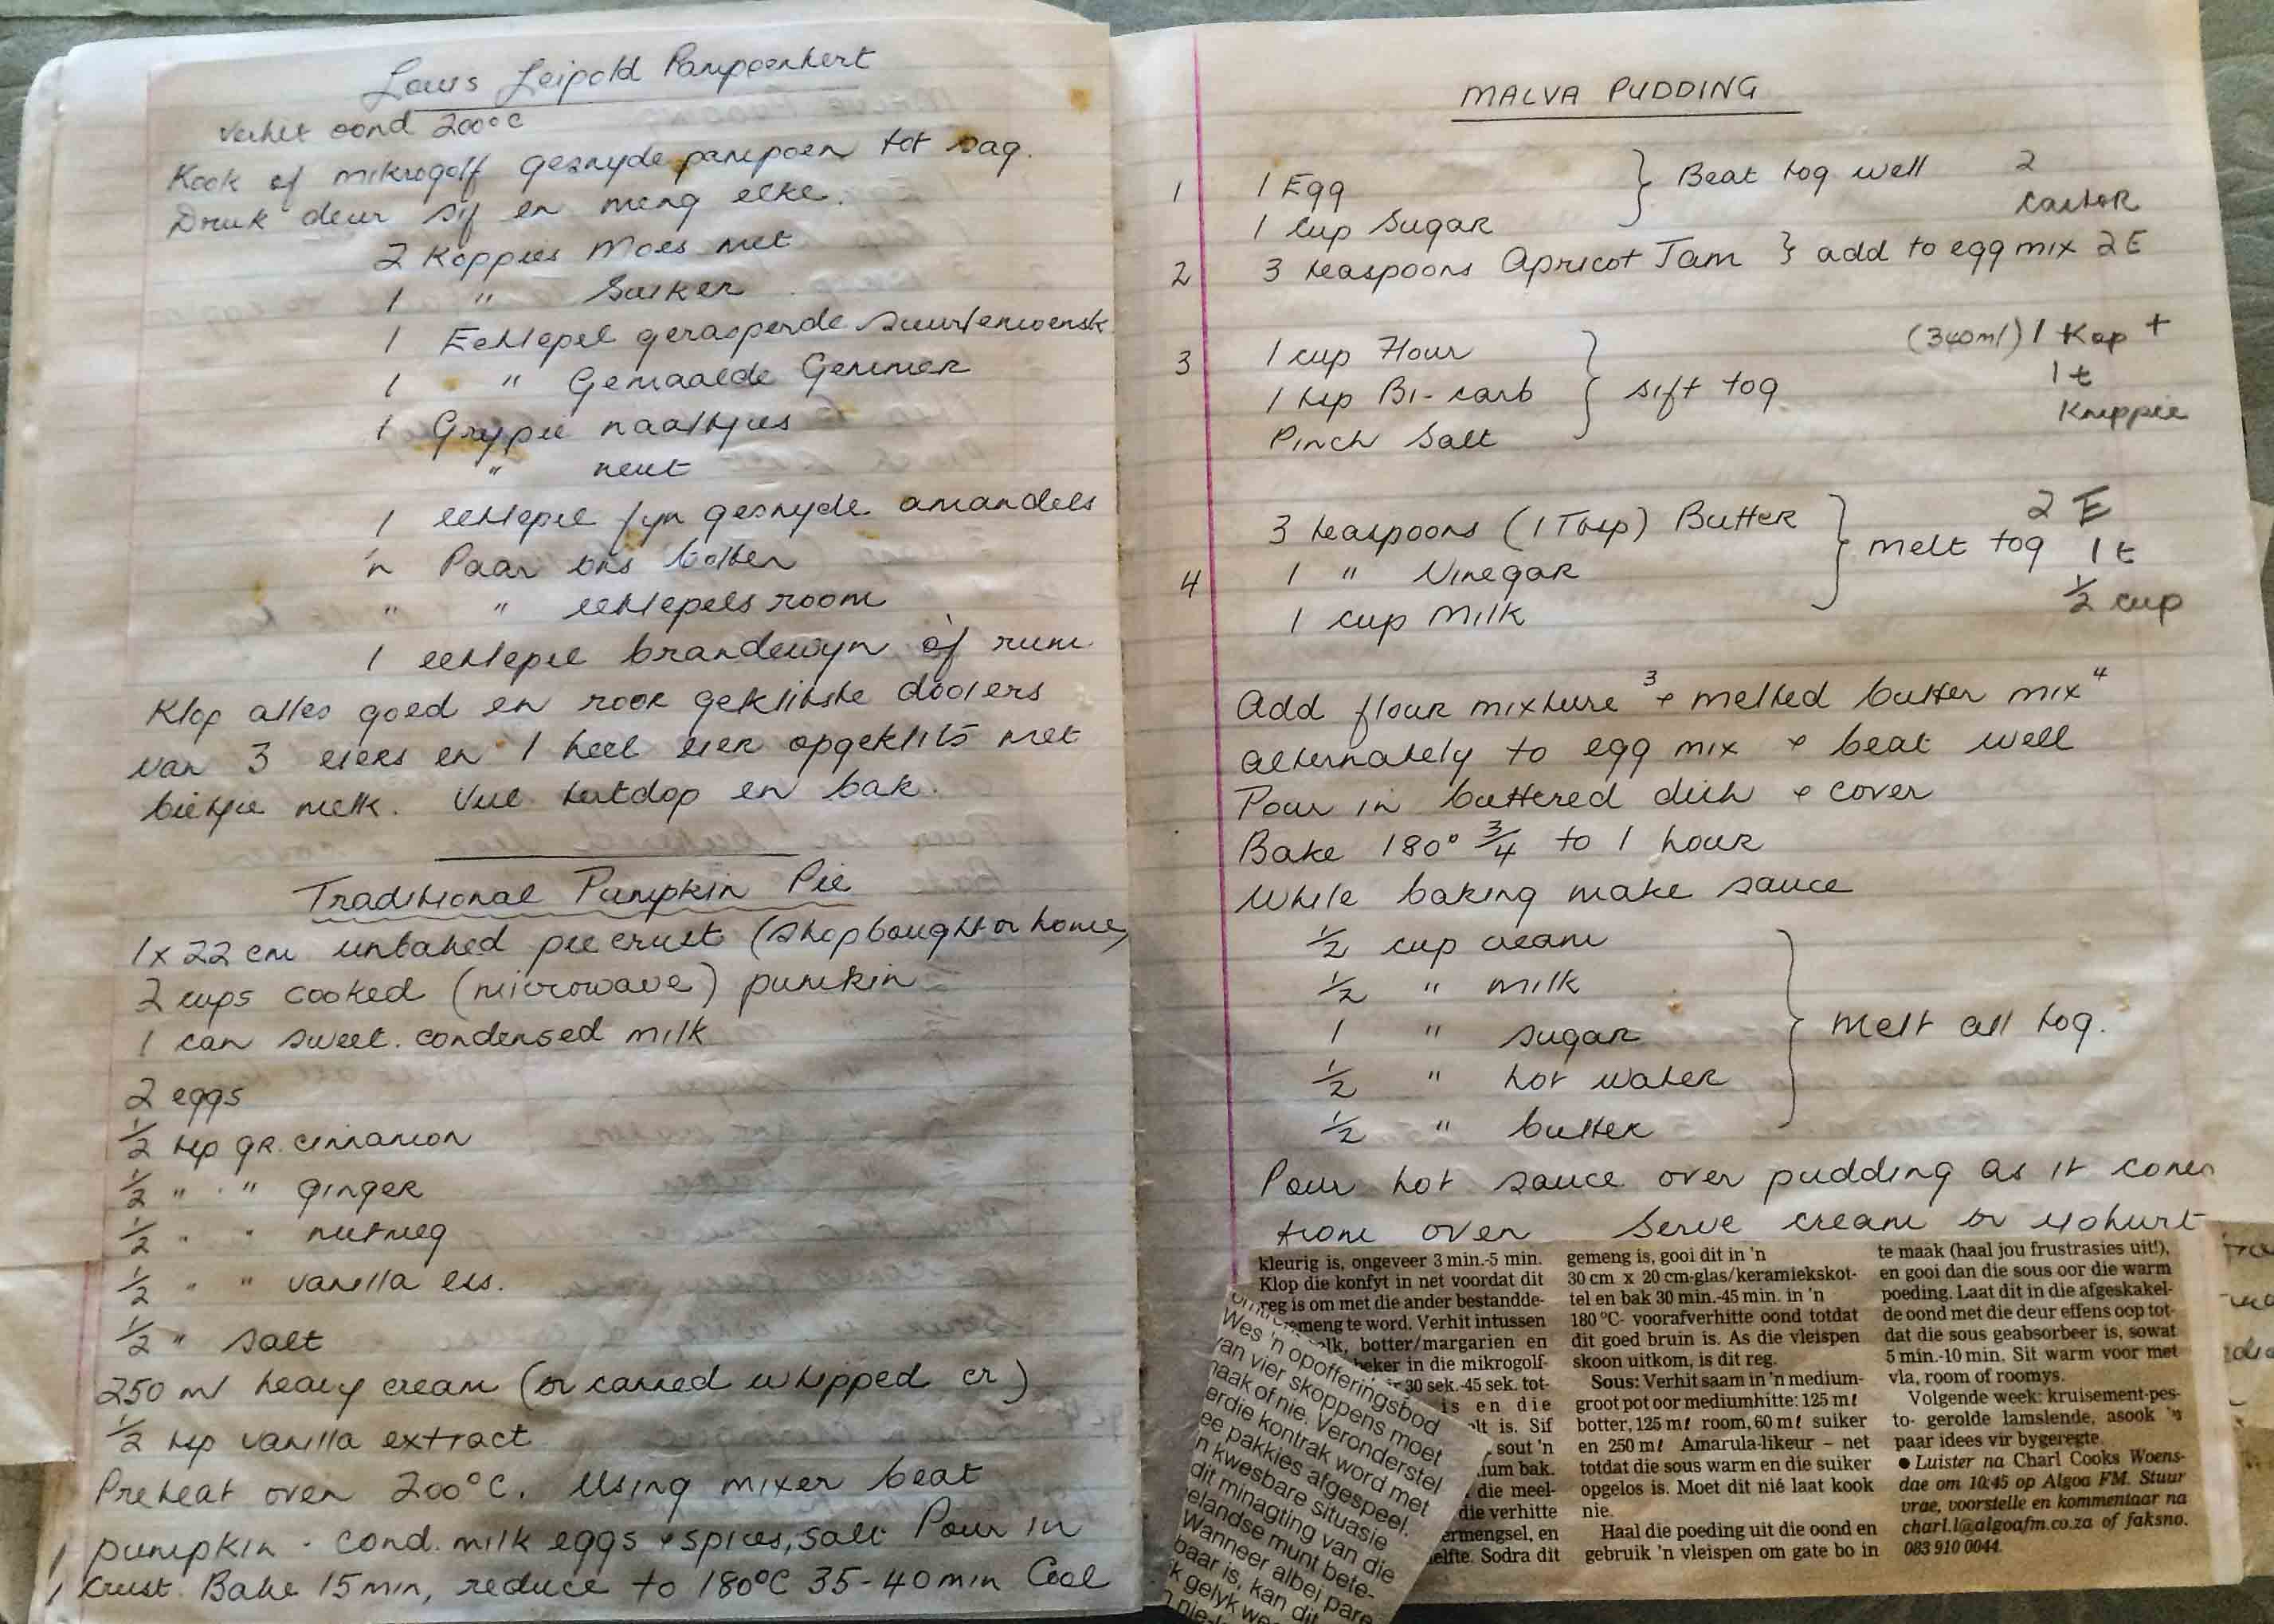 Louis Leipold Pampoentert
Verhit oond 200°C
Kook of mikrogolf gesnyde pampoen tot sag.
Druk deur sif en meng elke.
2 Koppies Moes met
1 " Suiker
1 Eetlepel gerasperde suurlemoensk
1 " Gemaalde Gemmer
1 Grypie naaltjies
" neut
1 eetlepel fyn gesnyde amandels
'n Paar ons botter
" " eetlepels room
1 eetlepel brandewyn òf rum
Klop alles goed en roer geklitste dooiers
van 3 eiers en 1 heel eier opgeklits met
bietjie melk. Vul tertdop en bak.
Traditional Pumpkin Pie
1 x 22 cm unbaked pie crust (shopbought or home)
2 cups cooked (microwave) pumkin
1 can sweet. condensed milk
2 eggs
1/2 tsp gr. cinnamon
1/2 " " ginger
1/2 " " nutmeg
1/2 " " vanilla ess.
1/2 " salt
250 ml heavy cream (or canned whipped cr)
1/2 tsp vanilla extract
Preheat oven 200°C. Using mixer beat
pumpkin . cond. milk eggs + spices, salt Pour in
crust. Bake 15 min, reduce to 180°C 35-40 min Cool
MALVA PUDDING
1 1 Egg } Beat tog well 2
1 cup Sugar caster
2 3 teaspoons Apricot Jam } add to egg mix 2 E
3 1 cup Flour } sift tog (340ml) 1 Kop +
1 tsp Bi-carb 1 t
Pinch Salt Knippie
3 teaspoons (1 Tbsp) Butter } melt tog 2 E
4 1 " Vinegar 1 t
1 cup Milk 1/2 cup
Add flour mixture ³ + melted butter mix ⁴
alternately to egg mix + beat well
Pour in buttered dish + cover
Bake 180° 3/4 to 1 hour
While baking make sauce
1/2 cup cream
1/2 " milk
1 " sugar } Melt all tog.
1/2 " hot water
1/2 " butter
Pour hot sauce over pudding as it comes
from oven Serve cream or yohurt
kleurig is, ongeveer 3 min.-5 min.
Klop die konfyt in net voordat dit
reg is om met die ander bestandde-
emeng te word. Verhit intussen
elk, botter/margarien en
beker in die mikrogolf-
30 sek.-45 sek. tot-
is en die
elt is. Sif
sout 'n
ium bak.
die meel-
die verhitte
ermengsel, en
elfte. Sodra dit
gemeng is, gooi dit in 'n
30 cm x 20 cm-glas/keramiekskot-
tel en bak 30 min.-45 min. in 'n
180 °C- voorafverhitte oond totdat
dit goed bruin is. As die vleispen
skoon uitkom, is dit reg.
Sous: Verhit saam in 'n medium-
groot pot oor mediumhitte: 125 ml
botter, 125 ml room, 60 ml suiker
en 250 ml Amarula-likeur – net
totdat die sous warm en die suiker
opgelos is. Moet dit nié laat kook
nie.
Haal die poeding uit die oond en
gebruik 'n vleispen om gate bo in
te maak (haal jou frustrasies uit!),
en gooi dan die sous oor die warm
poeding. Laat dit in die afgeskakel-
de oond met die deur effens oop tot-
dat die sous geabsorbeer is, sowat
5 min.-10 min. Sit warm voor met
vla, room of roomys.
Volgende week: kruisement-pes-
to- gerolde lamslende, asook 'n
paar idees vir bygeregte.
● Luister na Charl Cooks Woens-
dae om 10:45 op Algoa FM. Stuur
vrae, voorstelle en kommentaar na
charl.l@algoafm.co.za of faksno.
083 910 0044.
Wes 'n opofferingsbod
van vier skoppens moet
maak of nie. Veronderstel
erdie kontrak word met
ee pakkies afgespeel.
n kwesbare situasie
dit minagting van die
elandse munt bete-
Wanneer albei pare
baar is, kan dit
k gelyk we